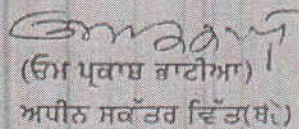 (ਓਮ ਪ੍ਰਕਾਸ਼ ਭਾਟੀਆ)
ਅਧੀਨ ਸਕੱਤਰ ਵਿੱਤ(ਬ)